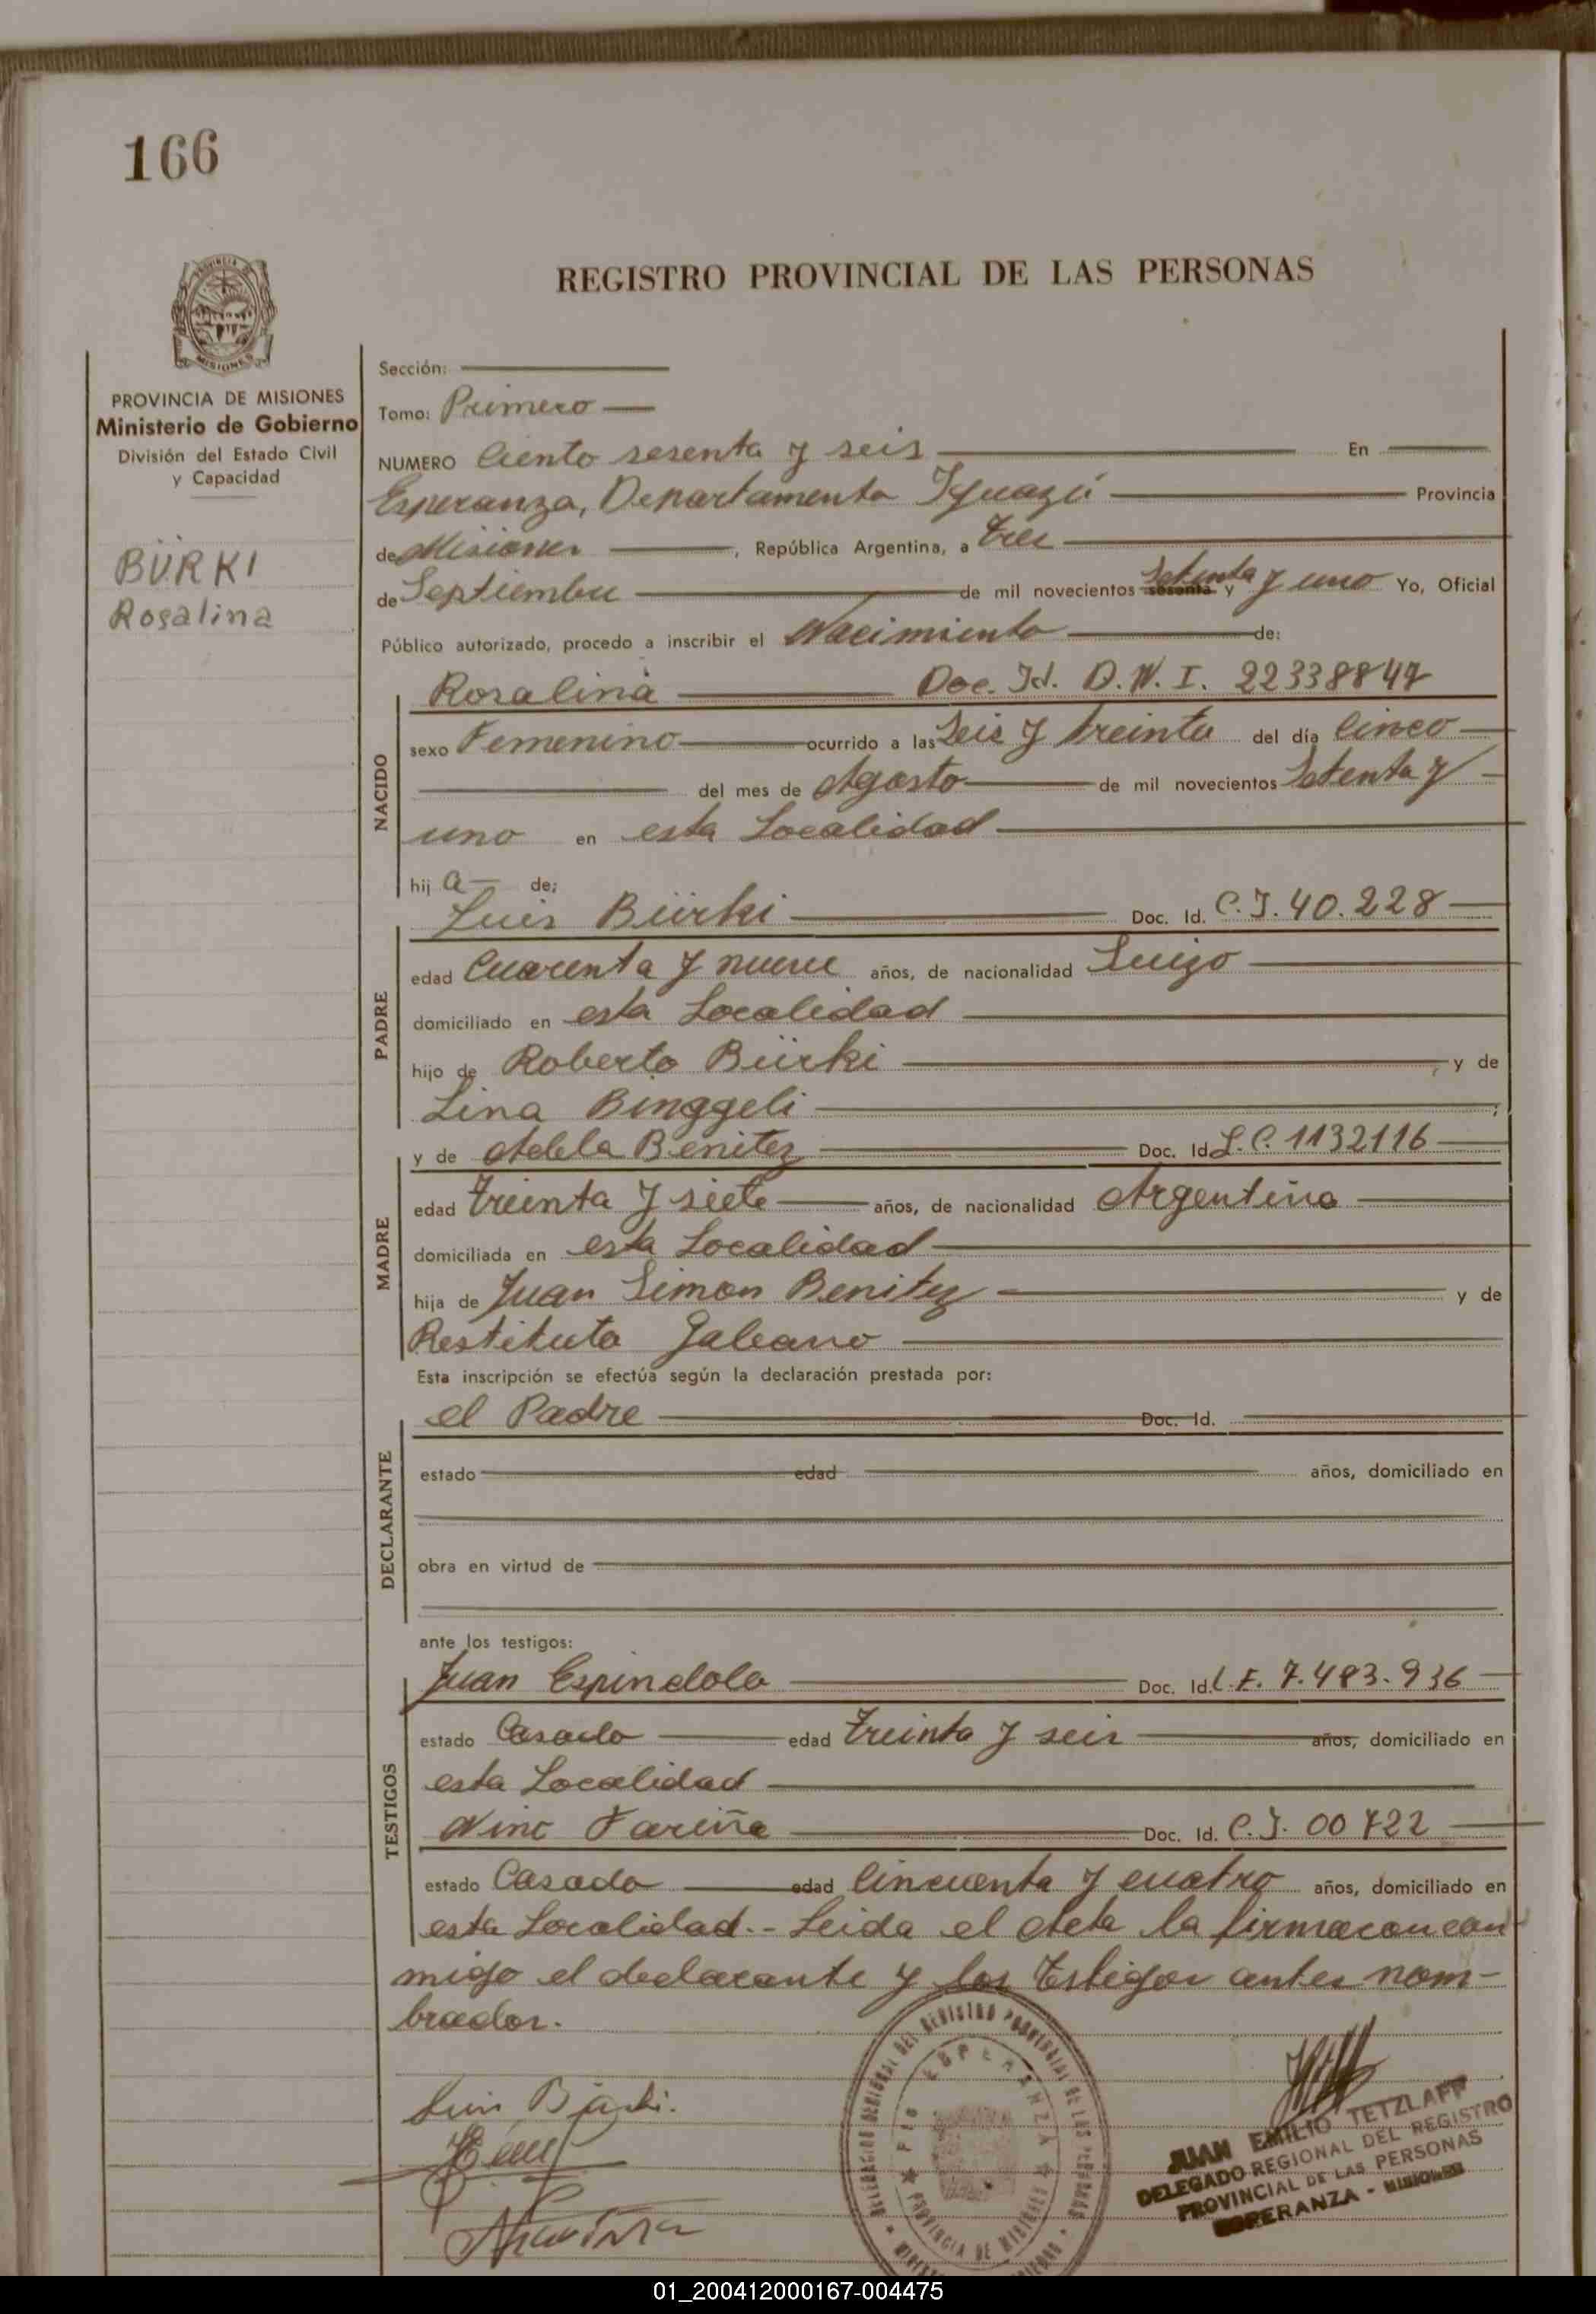 166
REGISTRO PROVINCIAL DE LAS PERSONAS
MISIONES
PROVINCIA DE MISIONES
Ministerio de Gobierno
División del Estado Civil
y Capacidad
BÜRKI
Rosalina
Sección:
Tomo: Primero
NUMERO Ciento sesenta y seis En
Esperanza, Departamento Iguazú Provincia
de Misiones, República Argentina, a tres
de Septiembre de mil novecientos sesenta y Setenta y uno Yo, Oficial
Público autorizado, procedo a inscribir el Nacimiento de:
Rosalina Doc. Id. D.N.I. 22338847
NACIDO
sexo Femenino ocurrido a las Seis y treinta del día Cinco
del mes de Agosto de mil novecientos Setenta y
uno en esta Localidad
hij a de:
Luis Bürki Doc. Id. C.I. 40.228
PADRE
edad Cuarenta y nueve años, de nacionalidad Suizo
domiciliado en esta Localidad
hijo de Roberto Bürki y de
Lina Binggeli;
y de Adela Benitez Doc. Id. L.C. 1132116
MADRE
edad treinta y siete años, de nacionalidad Argentina
domiciliada en esta Localidad
hija de Juan Simon Benitez y de
Restituta Galeano
Esta inscripción se efectúa según la declaración prestada por:
el Padre Doc. Id.
DECLARANTE
estado edad años, domiciliado en
obra en virtud de
ante los testigos:
Juan Espindola Doc. Id. L.E. 7.483.936
TESTIGOS
estado Casado edad treinta y seis años, domiciliado en
esta Localidad
Nino Fariña Doc. Id. C.I. 00722
estado Casado edad Cincuenta y cuatro años, domiciliado en
esta Localidad.- Leida el Acta la firmaron con
migo el declarante y los testigos antes nom-
brados.
Luis Bürki.
ESPERANZA
PROVINCIA DE MISIONES
JUAN EMILIO TETZLAFF
DELEGADO REGIONAL DEL REGISTRO
PROVINCIAL DE LAS PERSONAS
ESPERANZA - MISIONES
01_200412000167-004475